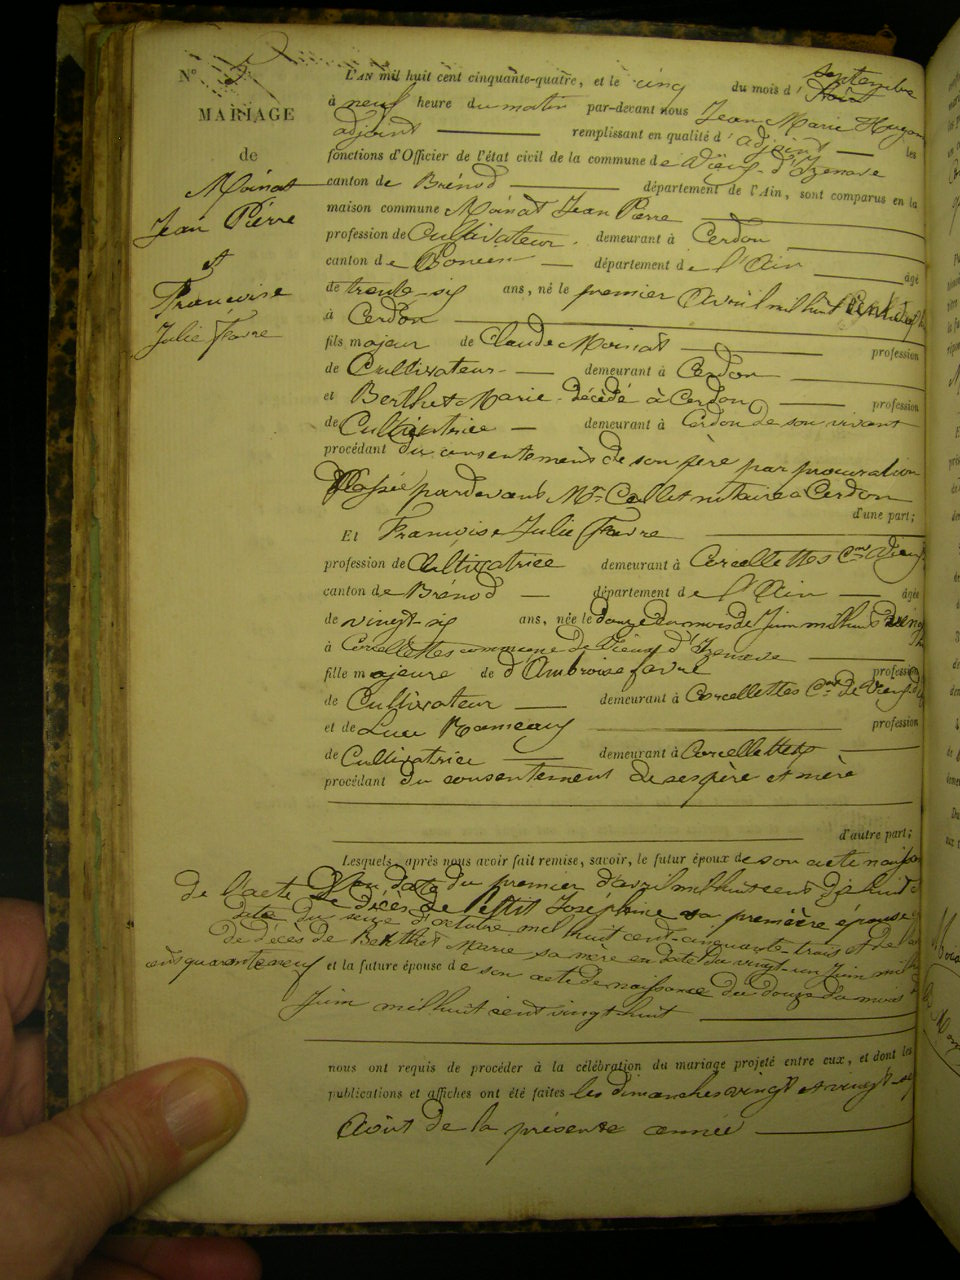 N° 5
MARIAGE
de
Moinat
Jean Pierre
et
Françoise
Julie Favre
L'AN mil huit cent cinquante-quatre, et le cinq du mois d' septembre
à neuf heure du matin par-devant nous Jean Marie
adjoint remplissant en qualité d'adjoint les
fonctions d'Officier de l'état civil de la commune de Vieu-d'Izenave
canton de Brénod département de l'Ain, sont comparus en la
maison commune Moinat Jean Pierre
profession de Cultivateur. demeurant à Cerdon
canton de Poncin département de l'Ain âgé
de trente-six ans, né le premier Avril mil huit cent
à Cerdon
fils majeur de Claude Moinat profession
de Cultivateur demeurant à Cerdon
et Berthet Marie décédé à Cerdon profession
de Cultivatrice demeurant à Cerdon de son vivant
procédant du consentement de son père par procuration
Passée pardevant Mr. Collet notaire à Cerdon
d'une part;
Et Françoise Julie Favre
profession de Cultivatrice demeurant à Corcellettes Cne Vieu
canton de Brénod département de l'Ain âgée
de vingt-six ans, née le douze du mois de Juin mil huit
à Corcellettes commune de Vieu d'Izenave
fille majeure de d'Ambroise favre profession
de Cultivateur demeurant à Corcellettes Cne de Vieu
et de Luce Rameaux profession
de Cultivatrice demeurant à Corcellettes
procédant du consentement de ses père et mère
d'autre part;
Lesquels, après nous avoir fait remise, savoir, le futur époux de son acte
en date du premier d'avril mil huit cent dix huit
de l'acte de décès de Petit Joséphine sa première épouse
date du seize d'octobre mil huit cent cinquante-trois et de
de décès de Berthet Marie sa mère en date du vingt-un Juin mil
cent quarante neuf et la future épouse de son acte de naissance du douze du mois
Juin mil huit cent vingt huit
nous ont requis de procéder à la célébration du mariage projeté entre eux, et dont les
publications et affiches ont été faites les dimanches vingt et vingt-sept
Août de la présente année